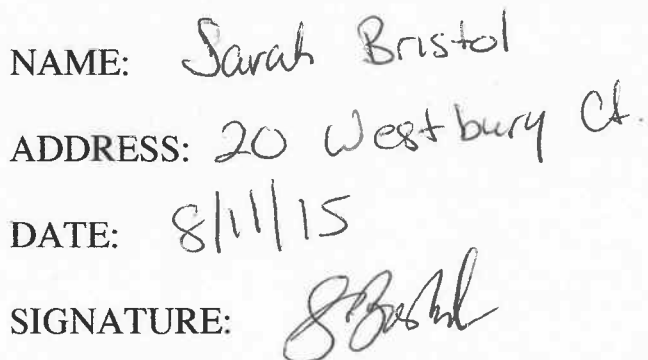 NAME: Sarah Bristol
ADDRESS: 20 Westbury Ct.
DATE: 8/11/15
SIGNATURE: S Bristol